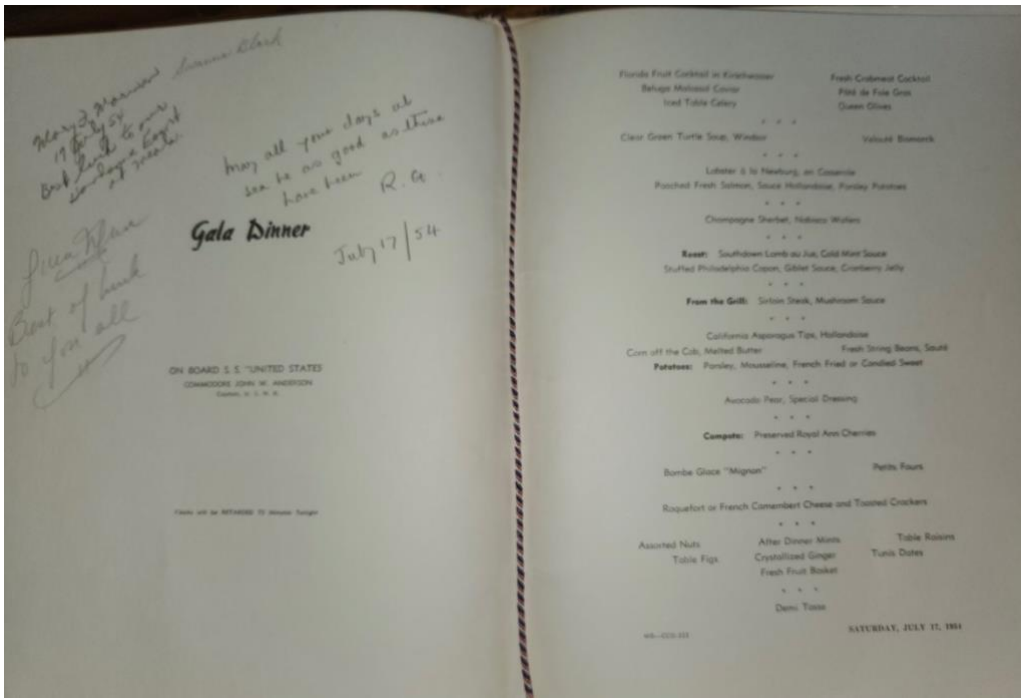 Mary
17 July 54
Best luck to our
at
May all your days at
sea be as good as these
have been R.G.
July 17/54
Best of luck
to you all
Gala Dinner
ON BOARD S. S. "UNITED STATES
COMMODORE JOHN W. ANDERSON
Captain, U. S. N. R.
Clocks will be RETARDED 75 Minutes Tonight
Florida Fruit Cocktail in Kirschwasser Fresh Crabmeat Cocktail
Beluga Malossol Caviar Pâté de Foie Gras
Iced Table Celery Queen Olives
Clear Green Turtle Soup, Windsor Velouté Bismarck
Lobster à la Newburg, en Casserole
Poached Fresh Salmon, Sauce Hollandaise, Parsley Potatoes
Champagne Sherbet, Nabisco Wafers
Roast: Southdown Lamb au Jus, Cold Mint Sauce
Stuffed Philadelphia Capon, Giblet Sauce, Cranberry Jelly
From the Grill: Sirloin Steak, Mushroom Sauce
California Asparagus Tips, Hollandaise
Corn off the Cob, Melted Butter Fresh String Beans, Sauté
Potatoes: Parsley, Mousseline, French Fried or Candied Sweet
Avocado Pear, Special Dressing
Compote: Preserved Royal Ann Cherries
Bombe Glace "Mignon" Petits Fours
Roquefort or French Camembert Cheese and Toasted Crackers
Assorted Nuts After Dinner Mints Table Raisins
Table Figs Crystallized Ginger Tunis Dates
Fresh Fruit Basket
Demi Tasse
SATURDAY, JULY 17, 1954